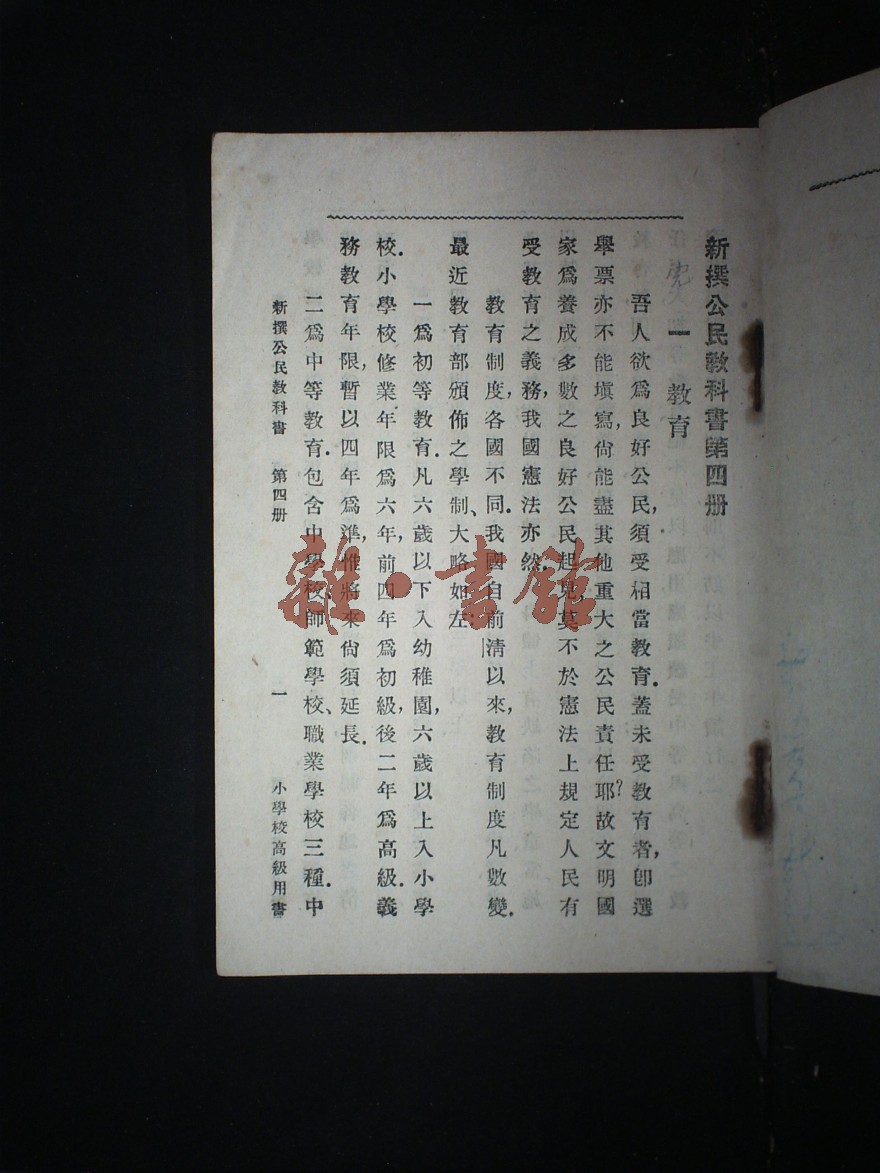 新撰公民教科書第四册
一 教育
吾人欲爲良好公民,須受相當教育.蓋未受教育者,卽選
舉票亦不能塡寫,尙能盡其他重大之公民責任耶?故文明國
家爲養成多數之良好公民起見,莫不於憲法上規定人民有
受教育之義務,我國憲法亦然.
教育制度,各國不同.我國自前清以來,教育制度凡數變.
最近教育部頒佈之學制、大略如左:
一爲初等教育.凡六歲以下入幼稚園,六歲以上入小學
校.小學校修業年限爲六年,前四年爲初級,後二年爲高級.義
務教育年限,暫以四年爲準,惟將來尙須延長.
二爲中等教育.包含中學校、師範學校、職業學校三種.中
新撰公民教科書 第四册 一 小學校高級用書
雜·書館